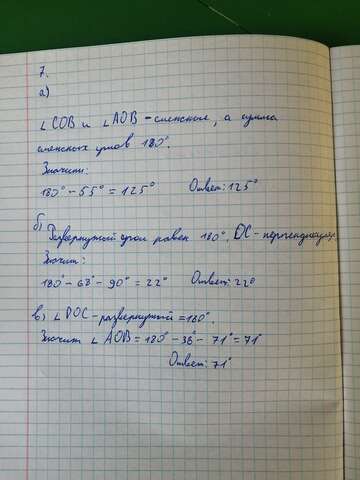 7.
а)
∠COB и ∠AOB - смежные, а сумма
смежных углов 180°.
Значит:
180° - 55° = 125° Ответ: 125°
б)
Развернутый угол равен 180°, OC - перпендикуляр.
Значит:
180° - 68° - 90° = 22° Ответ: 22°
в) ∠DOC - развернутый = 180°.
Значит ∠AOB = 180° - 38° - 71° = 71°
Ответ: 71°